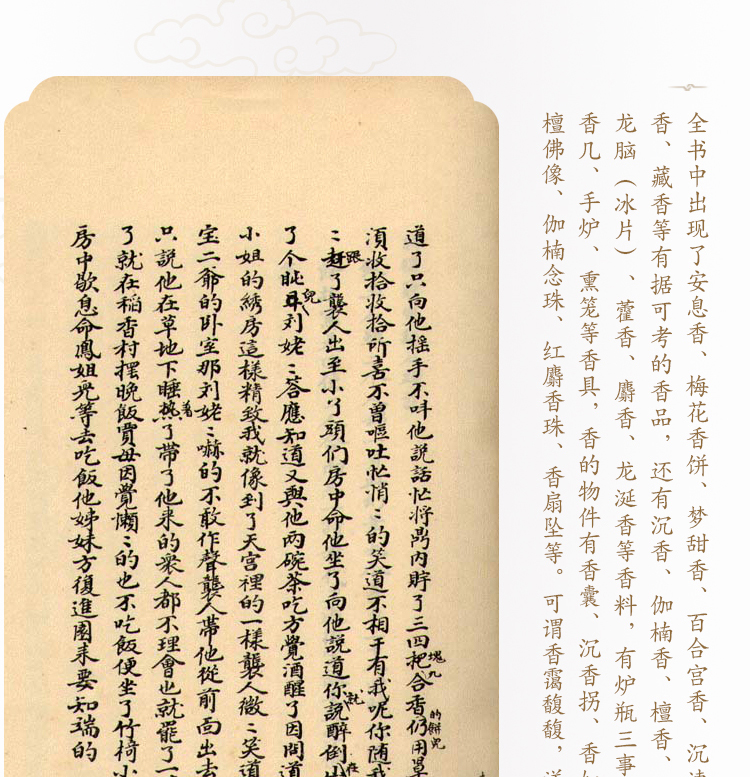 全书中出现了安息香、梅花香饼、梦甜香、百合宫香、沉
香、藏香等有据可考的香品，还有沉香、伽楠香、檀香、
龙脑（冰片）、藿香、麝香、龙涎香等香料，有炉瓶三事
香几、手炉、熏笼等香具，香的物件有香囊、沉香拐、香
檀佛像、伽楠念珠、红麝香珠、香扇坠等。可谓香霭馥馥，
道了只向他摇手不呌他說話忙將鼎内貯了三四把合香仍用罩
湏收拾收拾所喜不曽嘔吐忙悄〻的笑道不相干有我呢你随我
〻赶了襲人出至小丫頭們房中命他坐了向他說道你說醉倒
了个盹耳刘姥〻荅應知道又與他兩碗茶吃方覺酒醒了因問道
小姐的綉房這樣精致我就像到了天宫裡的一樣襲人微〻笑道
宝二爷的卧室那刘姥〻嚇的不敢作聲襲人帶他從前面出去
只說他在草地下睡着了帶了他来的衆人都不理會也就罷了一
了就在稲香村擺晚飯賈母因覺懶〻的也不吃飯便坐了竹椅小
房中歇息命鳳姐児等去吃飯他姊妹方復進園来要知端的